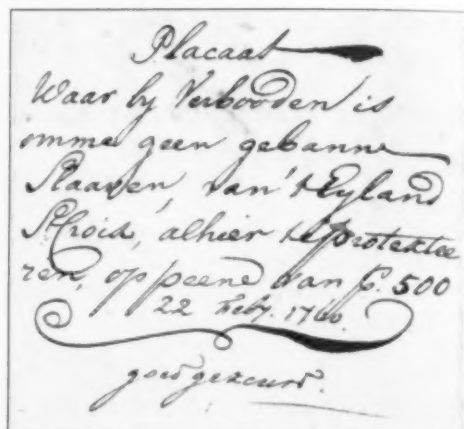 Placaat
Waar by Verbooden is
omme geen gebanne
Slaaven, van 't Eyland
St Croix, alhier te protectee
ren, op peene van ƒ. 500
22 Feby. 1760.
goed gekeurd.